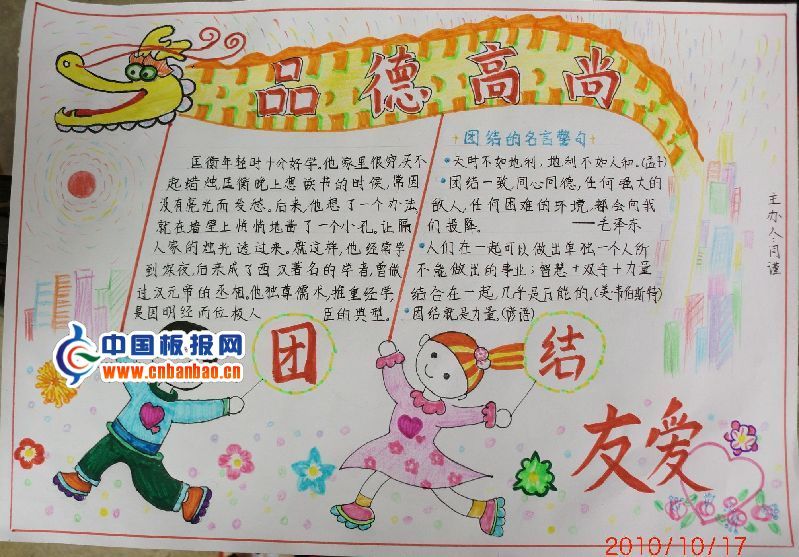 品德高尚
匡衡年轻时十分好学。他家里很穷,买不
起蜡烛,匡衡晚上想读书的时候,常因
没有亮光而发愁。后来,他想了一个办法,
就在墙壁上悄悄地凿了一个小孔。让隔
人家的烛光透过来。就这样,他经常学
到深夜,后来成了西汉著名的学者,曾做
过汉元帝的丞相。他独尊儒术,推重经学,
是因明经而位极人臣的典型。
团结的名言警句
天时不如地利,地利不如人和。(孟子)
团结一致,同心同德,任何强大的
敌人,任何困难的环境,都会向我
们投降。——毛泽东
人们在一起可以做出单独一个人所
不能做出的事业;智慧+双手+力量
结合在一起,几乎是万能的。(美·韦伯斯特)
团结就是力量。(谚语)
主办人:闫谨
中国板报网
www.cnbanbao.cn
团
结
友爱
2010/10/17